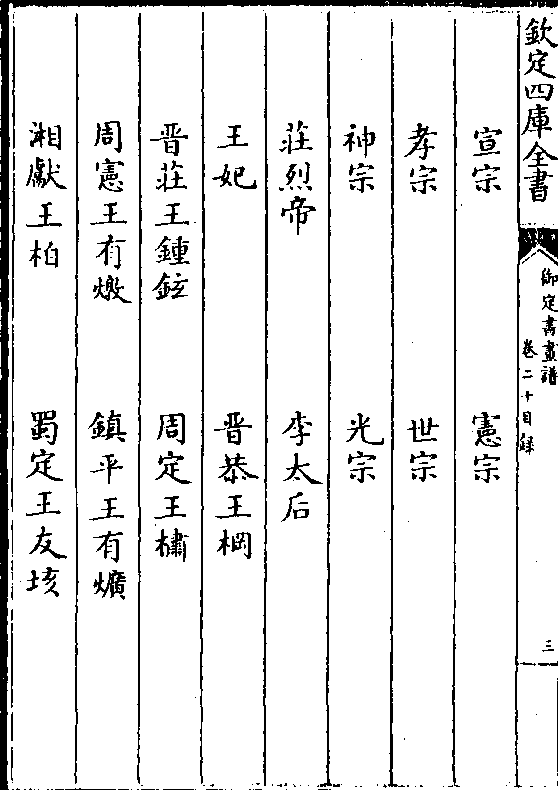 欽定四庫全書
御定書畫譜
卷二十目録
三
宣宗 憲宗
孝宗 世宗
神宗 光宗
莊烈帝 李太后
王妃 晉恭王棡
晉莊王鍾鉉 周定王橚
周憲王有燉 鎮平王有爌
湘獻王柏 蜀定王友垓